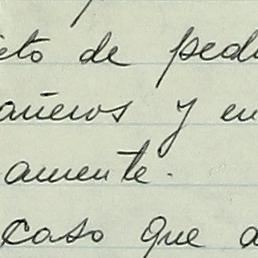 cto de ped
añeros y en
amente.
caso que a